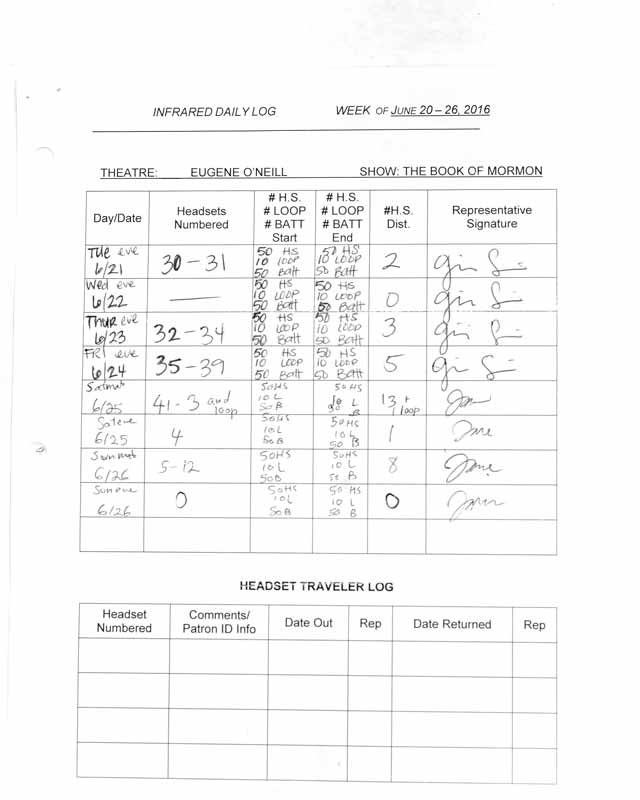 INFRARED DAILY LOG WEEK OF JUNE 20 – 26, 2016
THEATRE: EUGENE O'NEILL SHOW: THE BOOK OF MORMON
Day/Date
Headsets
Numbered
# H.S.
# LOOP
# BATT
Start
# H.S.
# LOOP
# BATT
End
#H.S.
Dist.
Representative
Signature
Tue eve
6/21
30 – 31
50 HS
10 loop
50 Batt
50 HS
10 LOOP
50 Batt
2
Wed eve
6/22
50 HS
10 LOOP
50 Batt
50 HS
10 LOOP
50 Batt
0
Thur eve
6/23
32 – 34
50 HS
10 LOOP
50 Batt
50 HS
10 LOOP
50 Batt
3
FRI eve
6/24
35 – 39
50 HS
10 LOOP
50 Batt
50 HS
10 LOOP
50 Batt
5
Sat mat
6/25
41 - 3 and
loop
50HS
10 L
50 B
50 HS
10 L
50 B
13 +
1 loop
Sat eve
6/25
4
50HS
10L
50B
50HS
10L
50 B
1
Sun mat
6/26
5-12
50HS
10 L
50B
50HS
10 L
50 B
8
Sun eve
6/26
0
50HS
10L
50B
50 HS
10 L
50 B
0
HEADSET TRAVELER LOG
Headset
Numbered
Comments/
Patron ID Info
Date Out
Rep
Date Returned
Rep